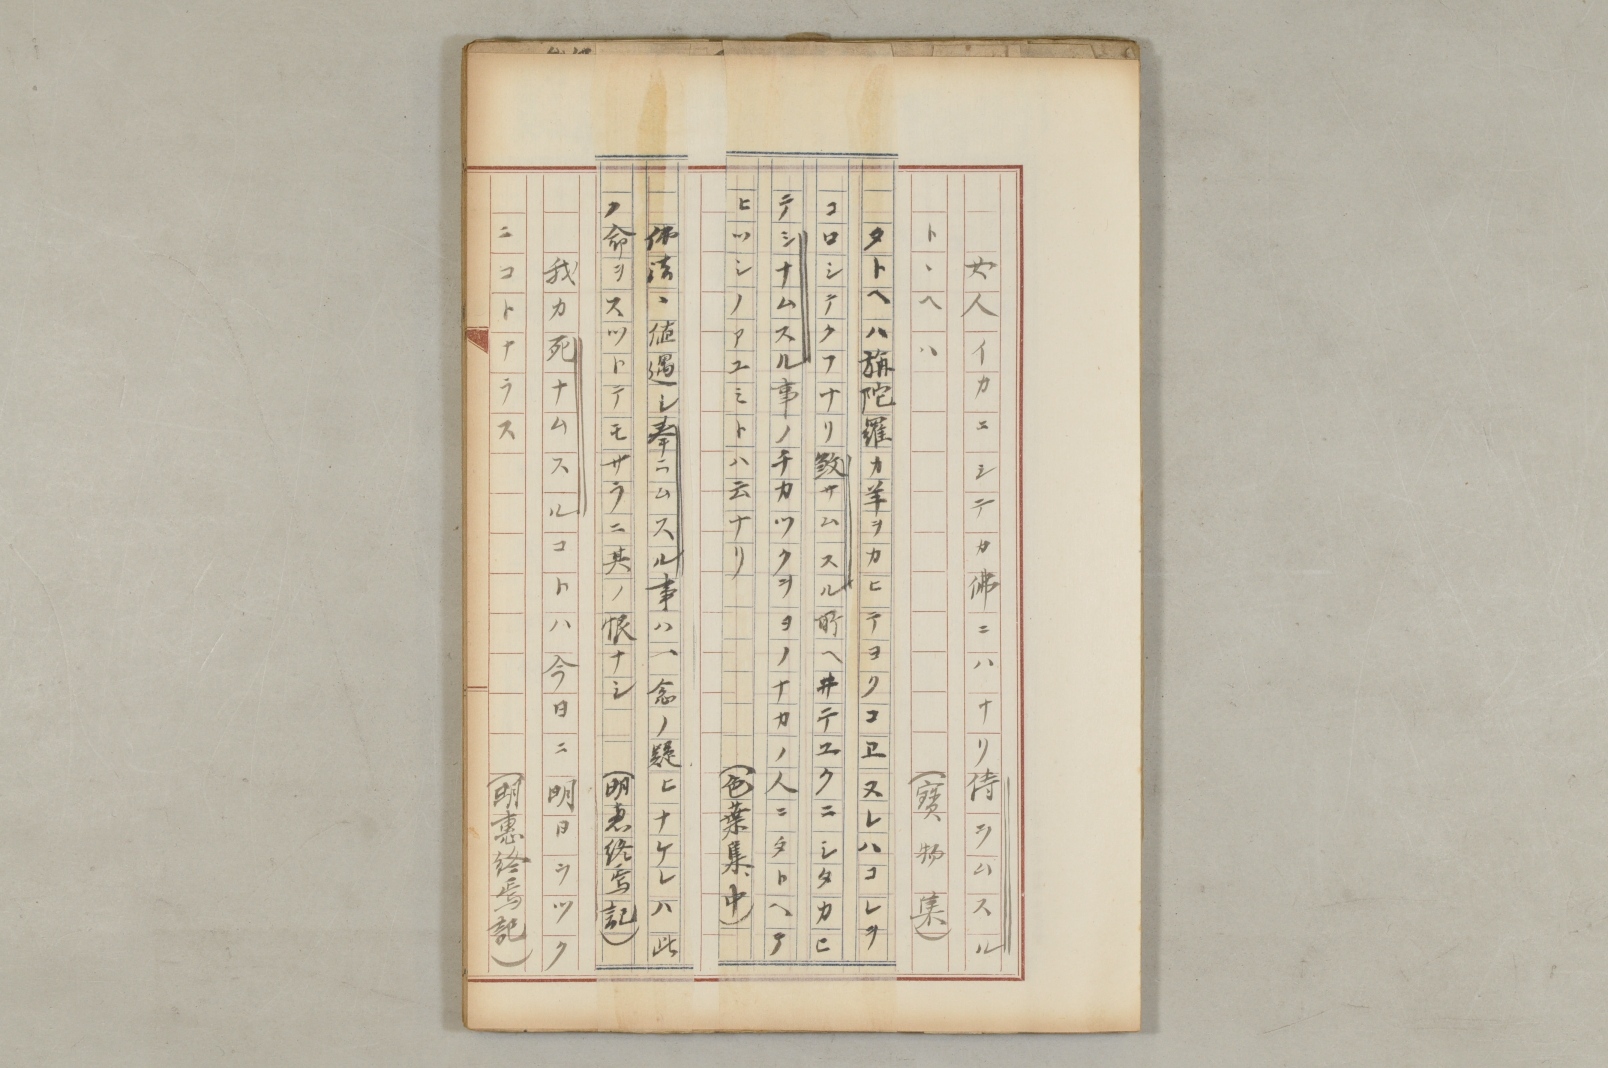 女人イカニシテカ佛ニハナリ侍ラムスル
トヽヘハ（寳物集）
タトヘハ旃陀羅カ羊ヲカヒテヨクコヱヌレハコレヲ
コロシテクフナリ殺サムスル所ヘ井テユクニシタカヒ
テシナムスル事ノチカツクヲヨノナカノ人ニタトヘテ
ヒツシノアユミトハ云ナリ（色葉集、中）
佛法ヽ値遇シ奉ラムスル事ハ一念ノ疑ヒナケレハ此
ノ命ヲスツトテモサラニ其ノ恨ナシ（明恵終焉記）
我カ死ナムスルコトハ今日ニ明日ヲツク
ニコトナラス（明惠終焉記）